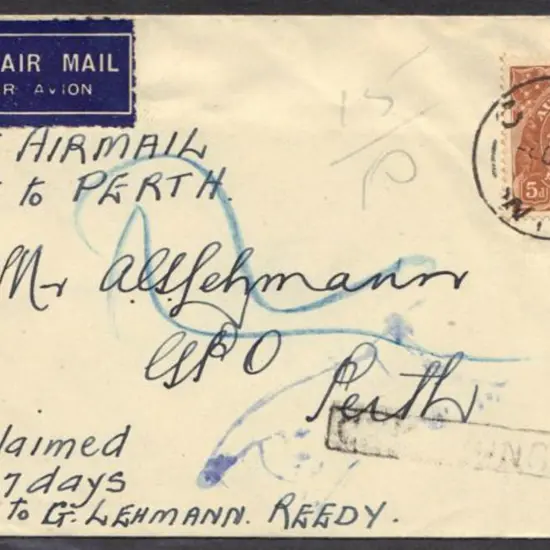 AIR MAIL
R AVION
AIRMAIL
to PERTH.
15/
5d
Mr A.C. Lehmann
GPO
Perth
laimed
7 days
to G. LEHMANN. REEDY.